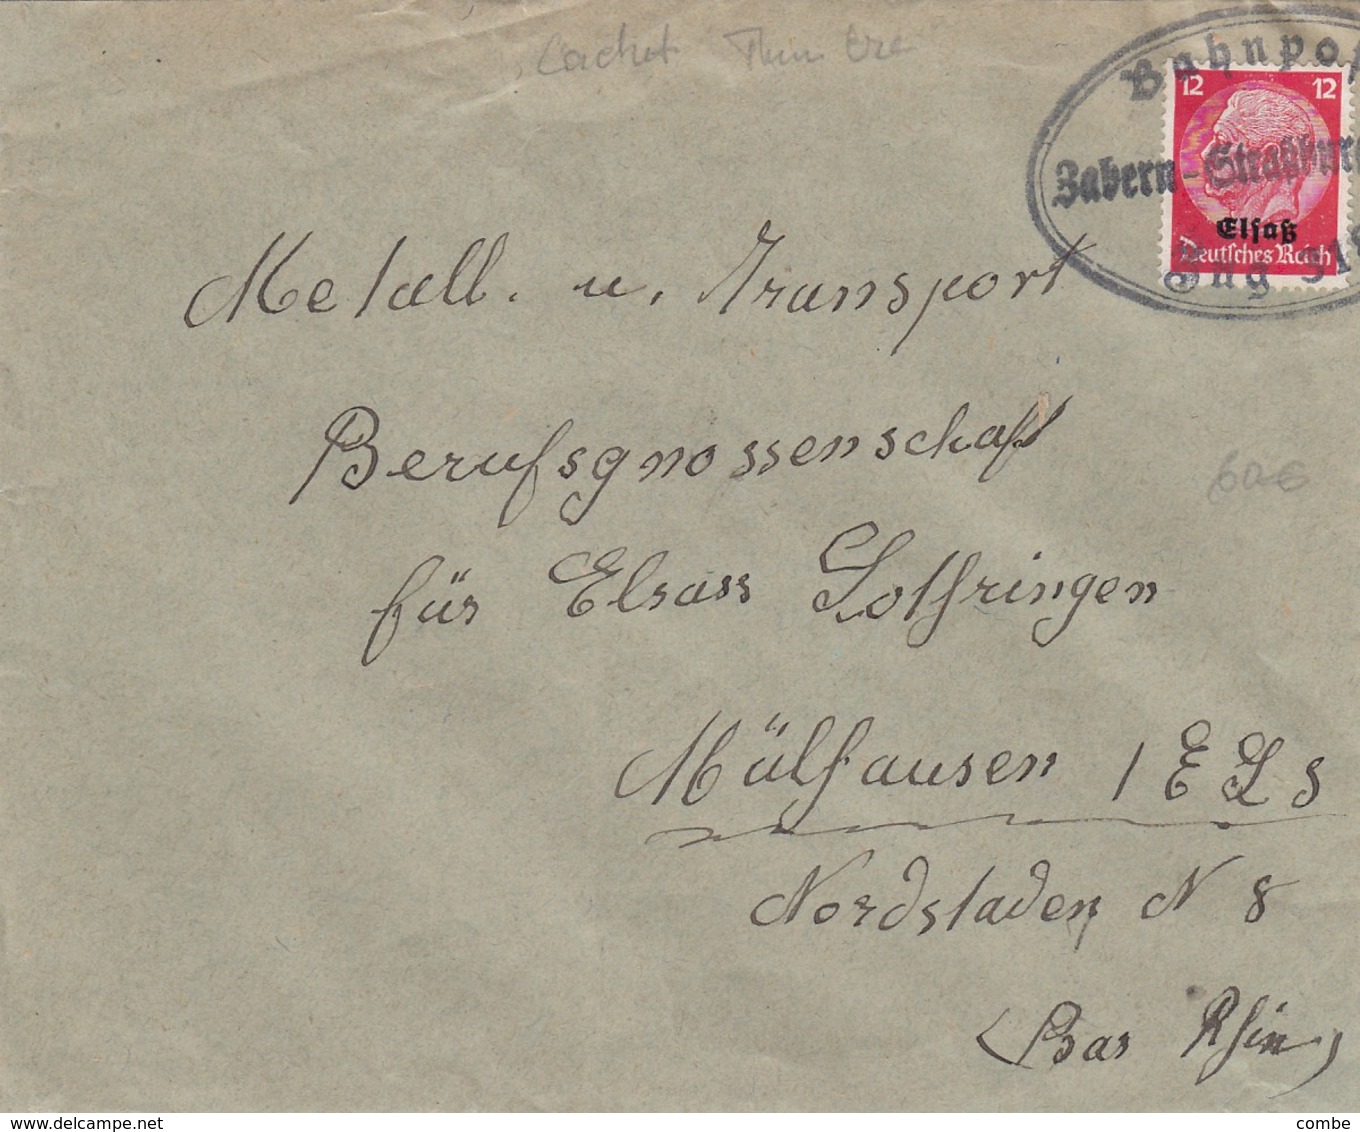 Cachet
Bahnpos
12 12
Zabern-Straßburg
Elsaß
Deutsches Reich
Zug 318
Metall. u. Transport
Berufsgnossenschaft
für Elsass Lothringen
Mülhausen 1 ELs
Nordstaden N 8
(Bas Rhin)
60€
www.delcampe.net
combe